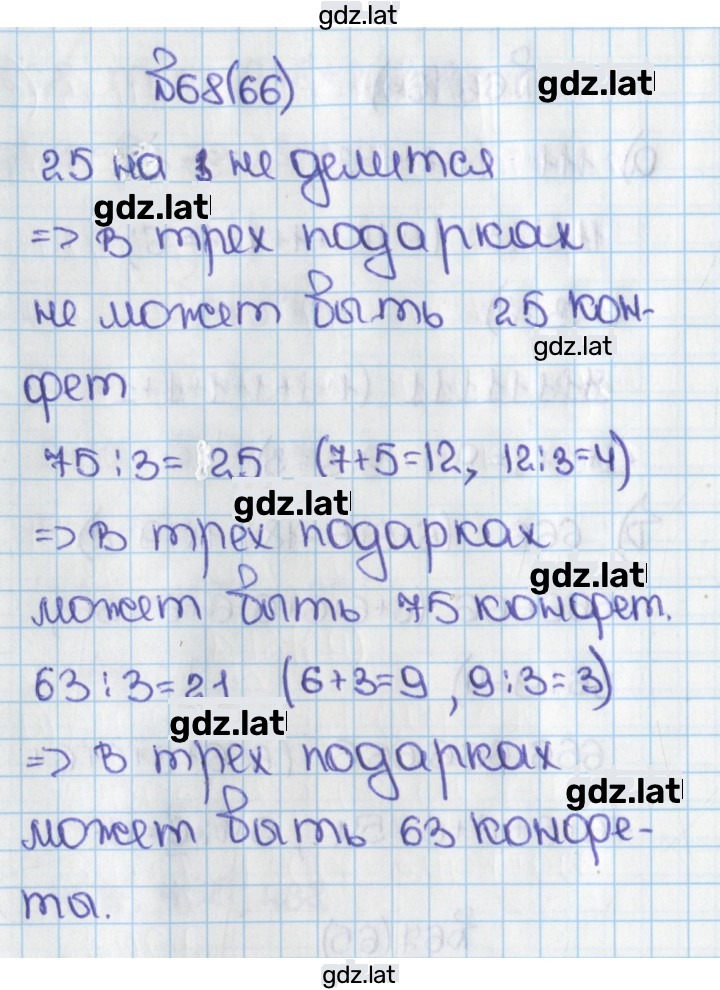 gdz.lat
№68(66)
gdz.lat
25 на 3 не делится
gdz.lat
=> в трех подарках
не может быть 25 кон-
gdz.lat
фет
75:3= 25 (7+5=12, 12:3=4)
gdz.lat
=> в трех подарках
gdz.lat
может быть 75 конфет.
63:3=21 (6+3=9, 9:3=3)
gdz.lat
=> в трех подарках
gdz.lat
может быть 63 конфе-
ты.
gdz.lat